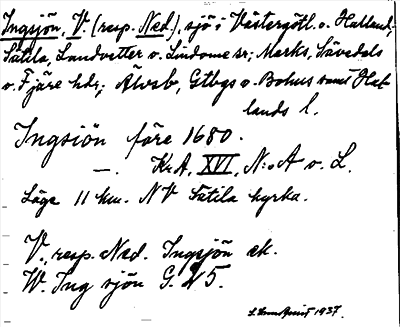 Ingsjön, V. (resp. Ned.), sjö i Västergötl. o. Halland,
Sätila, Landvetter o. Lindome sr; Marks, Sävedals
o. Fjäre hdr; Älvsb, Gtbgs o. Bohus samt Hal-
lands l.
Ingsiön före 1680.
—. Kr.A, XVI, N:o A o. L.
Läge 11 km. NV Sätila kyrka.
V., resp. Ned. Ingsjön ek.
W. Ing sjön G. 25.
1937.